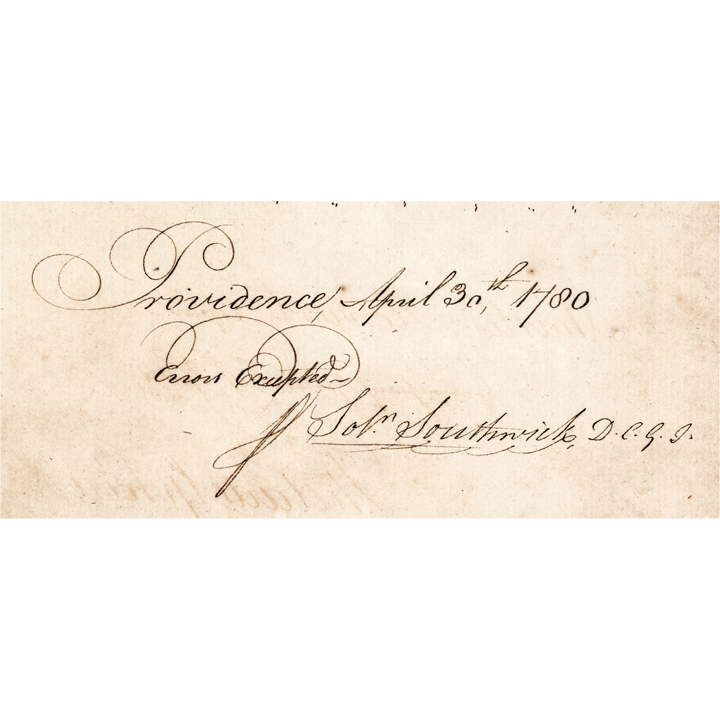 Providence, April 30,th 1780
Errors Excepted—
Soln. Southwick, D. C. G. I.